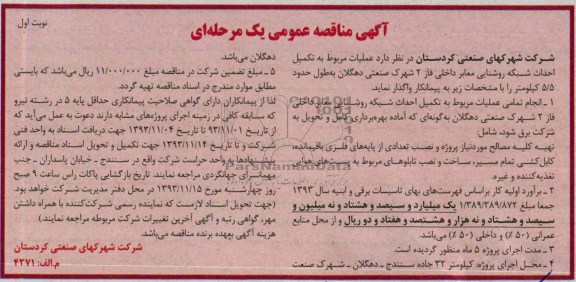 آگهی مناقصه عمومی یک مرحله‌ای
نوبت اول
شرکت شهرکهای صنعتی کردستان در نظر دارد عملیات مربوط به تکمیل
احداث شبکه روشنایی معابر داخلی فاز ۲ شهرک صنعتی دهگلان به‌طول حدود
۵/۵ کیلومتر را با مشخصات زیر به پیمانکار واگذار نماید.
۱ ـ انجام تمامی عملیات مربوط به تکمیل احداث شبکه روشنایی معابر داخلی
فاز ۲ شهرک صنعتی دهگلان به‌گونه‌ای که آماده بهره‌برداری کامل و تحویل به
شرکت برق شود، شامل:
تهیه کلیه مصالح موردنیاز پروژه و نصب تعدادی از پایه‌های فلزی باقیمانده،
کابل‌کشی تمام مسیر، ساخت و نصب تابلوهای مربوط به پست‌های هوایی
تغذیه‌کننده و غیره.
۲ ـ برآورد اولیه کار براساس فهرست‌های بهای تاسیسات برقی و ابنیه سال ۱۳۹۳
جمعا مبلغ ۱/۳۸۹/۳۸۹/۸۷۲ یک میلیارد و سیصد و هشتاد و نه میلیون و
سیصد و هشتاد و نه هزار و هشتصد و هفتاد و دو ریال و از محل منابع
عمرانی (۵۰ ٪) و داخلی (۵۰ ٪) می‌باشد.
۳ ـ مدت اجرای پروژه ۵ ماه منظور گردیده است.
۴ ـ محل اجرای پروژه: کیلومتر ۳۲ جاده سنندج ـ دهگلان ـ شهرک صنعت
دهگلان می‌باشد.
۵ ـ مبلغ تضمین شرکت در مناقصه مبلغ ۱۱/۰۰۰/۰۰۰ ریال می‌باشد که بایستی
مطابق موارد مندرج در اسناد مناقصه تهیه گردد.
لذا از پیمانکاران دارای گواهی صلاحیت پیمانکاری حداقل پایه ۵ در رشته نیرو
که سابقه کافی در زمینه اجرای پروژه‌های مشابه دارند دعوت به عمل می‌آید که
از تاریخ ۹۳/۱۱/۰۱ تا تاریخ ۱۳۹۳/۱۱/۰۴ جهت دریافت اسناد به واحد فنی
شرکت و تا تاریخ ۱۳۹۳/۱۱/۱۴ جهت تکمیل و تحویل اسناد مناقصه و ارائه
پیشنهادها به واحد حراست شرکت واقع در سنندج ـ خیابان پاسداران ـ جنب
مهمانسرای جهانگردی مراجعه نمایند. تاریخ بازگشایی پاکات راس ساعت ۹ صبح
روز چهارشنبه مورخ ۱۳۹۳/۱۱/۱۵ در محل دفتر مدیریت شرکت خواهد بود.
(جهت تحویل اسناد لازمست که نماینده رسمی شرکت‌کننده با همراه داشتن
مهر، گواهی رتبه و آگهی آخرین تغییرات شرکت مربوطه مراجعه نمایند.)
هزینه آگهی بعهده برنده مناقصه می‌باشد.
شرکت شهرکهای صنعتی کردستان
م.الف: ۴۲۷۱